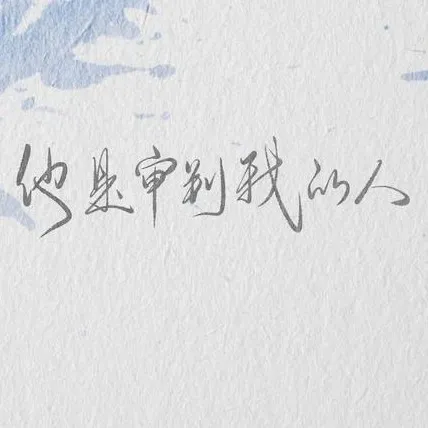 他是审判我的人